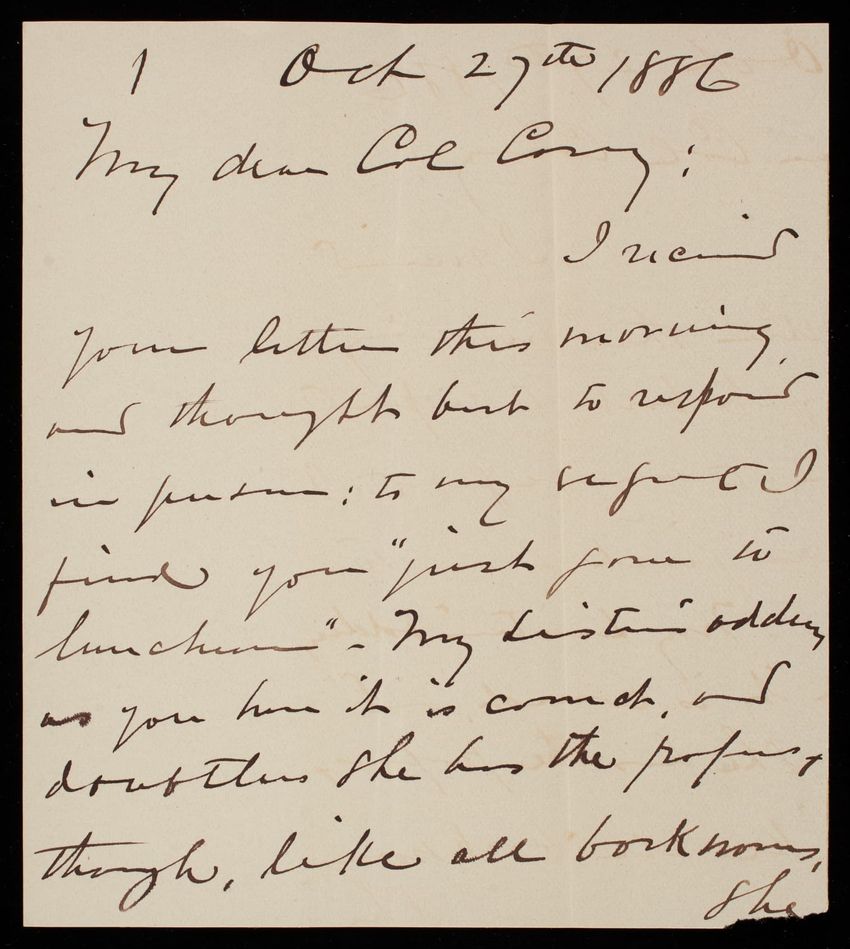 1 Oct 27th 1886
My dear Col Casey:
I received
your letter this morning,
and thought best to respond
in person: to my regret I
find you "just gone to
luncheon" - My sister's address
as you have it is correct, and
doubtless she has the papers,
though, like all bookworms,
she